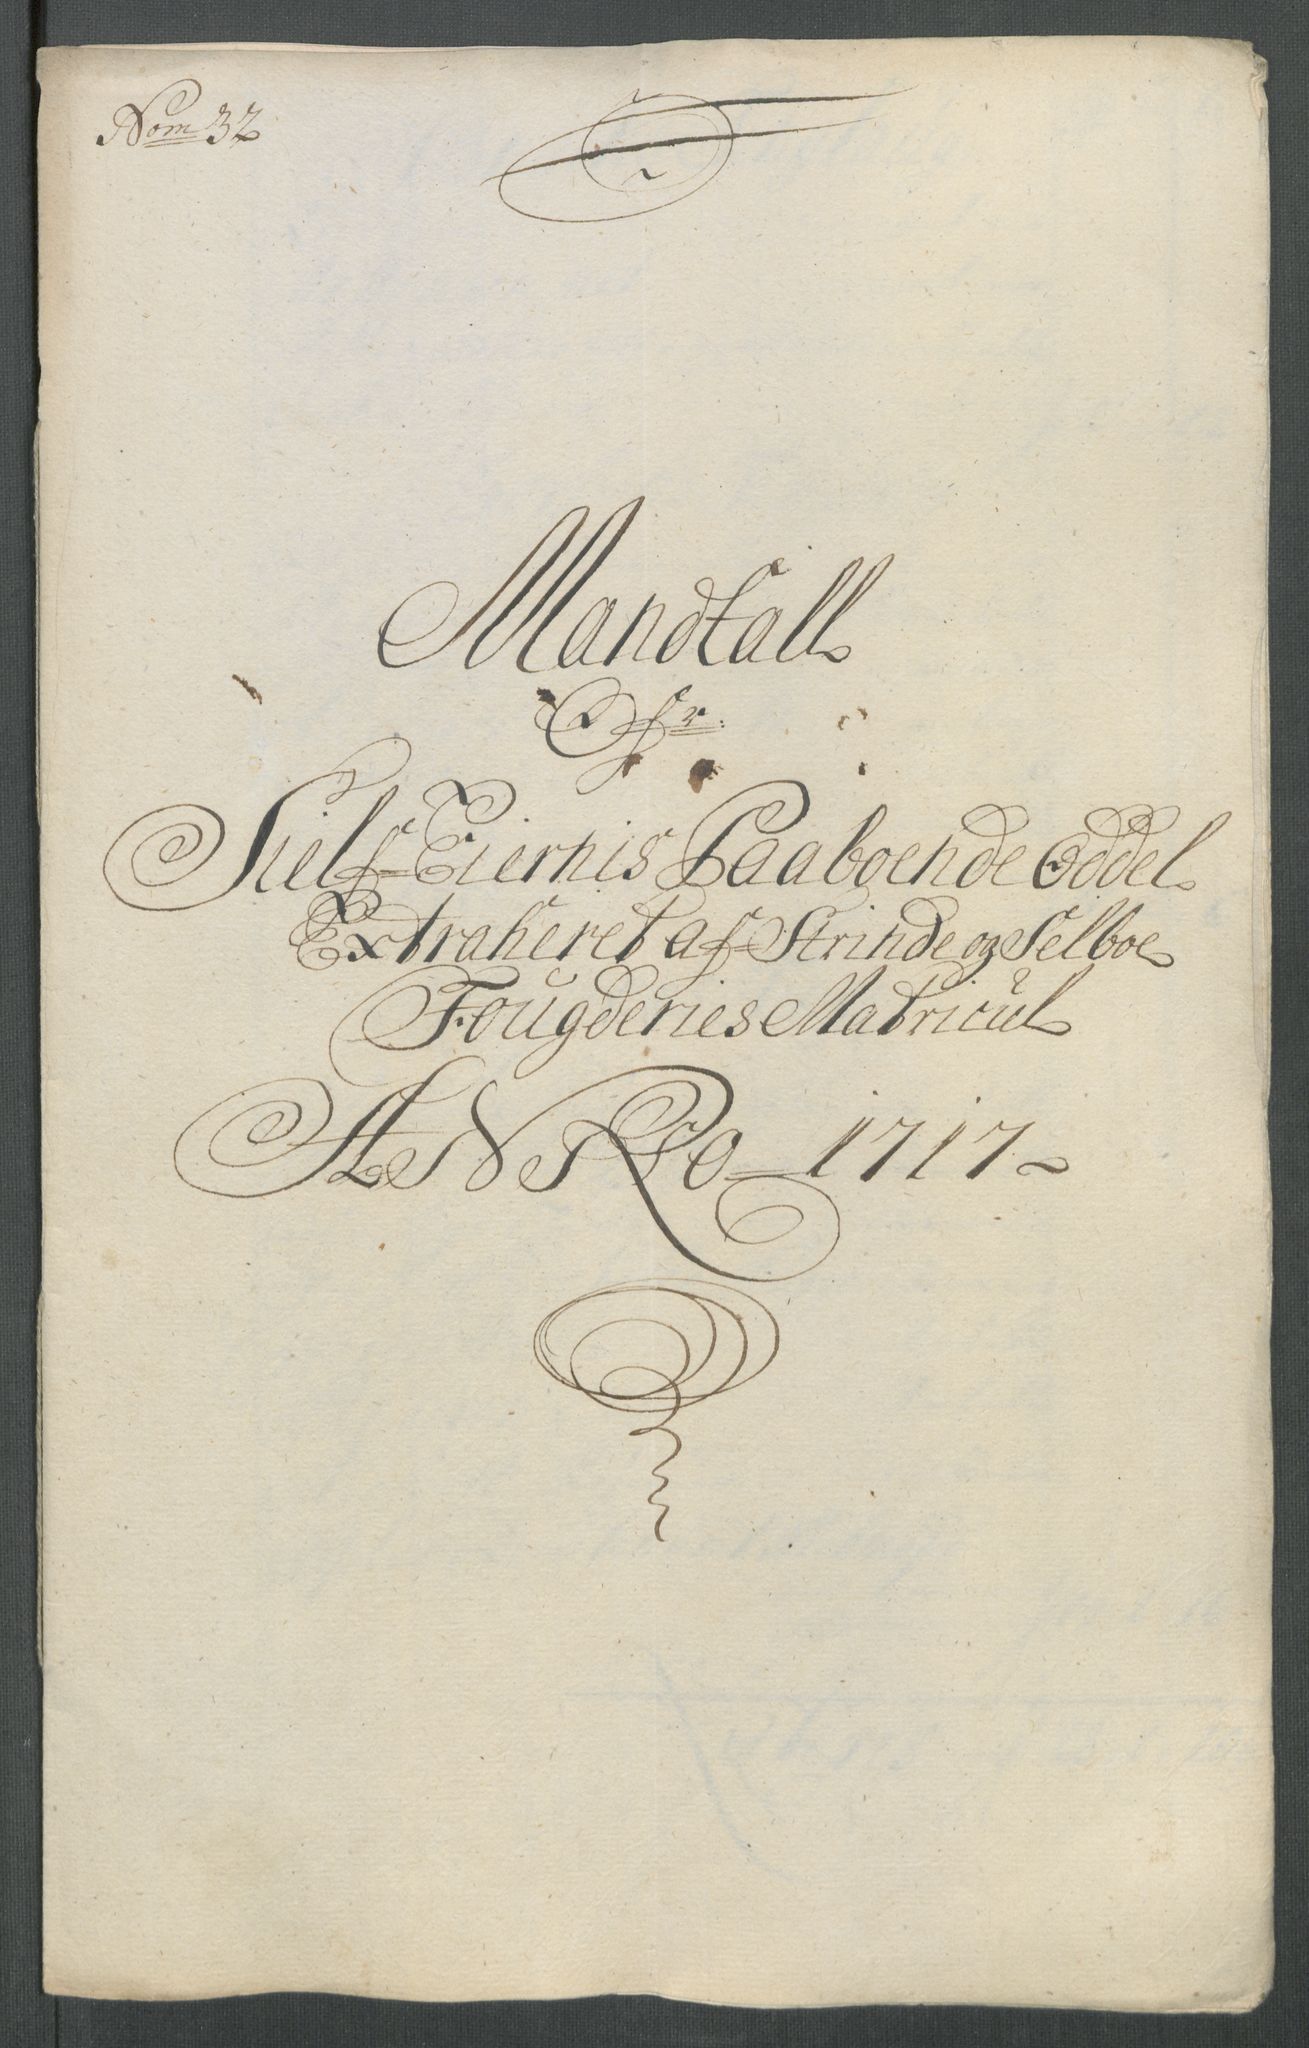 Nom 32
Mandtall
Ofr.
Sielf-Eiernis Paaboende Oddel
Extraheret af Strinde og Selboe
Fougderies Matricul
ANNO 1717